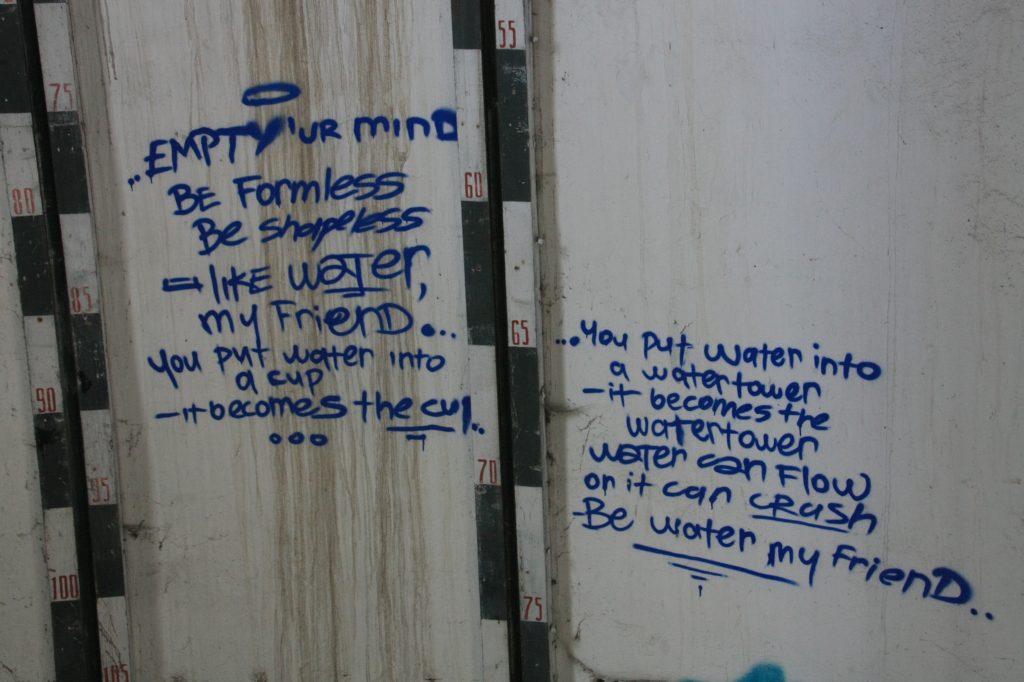 75
80
85
90
95
100
105
..EMPTY 'UR minD
BE Formless
Be shapeless
=like water,
my FrienD...
you put water into
a cup
-it becomes the cup..
...
55
60
65
70
75
...You put water into
a watertower
-it becomes the
watertower
water can Flow
or it can crash
-Be water my FrienD..